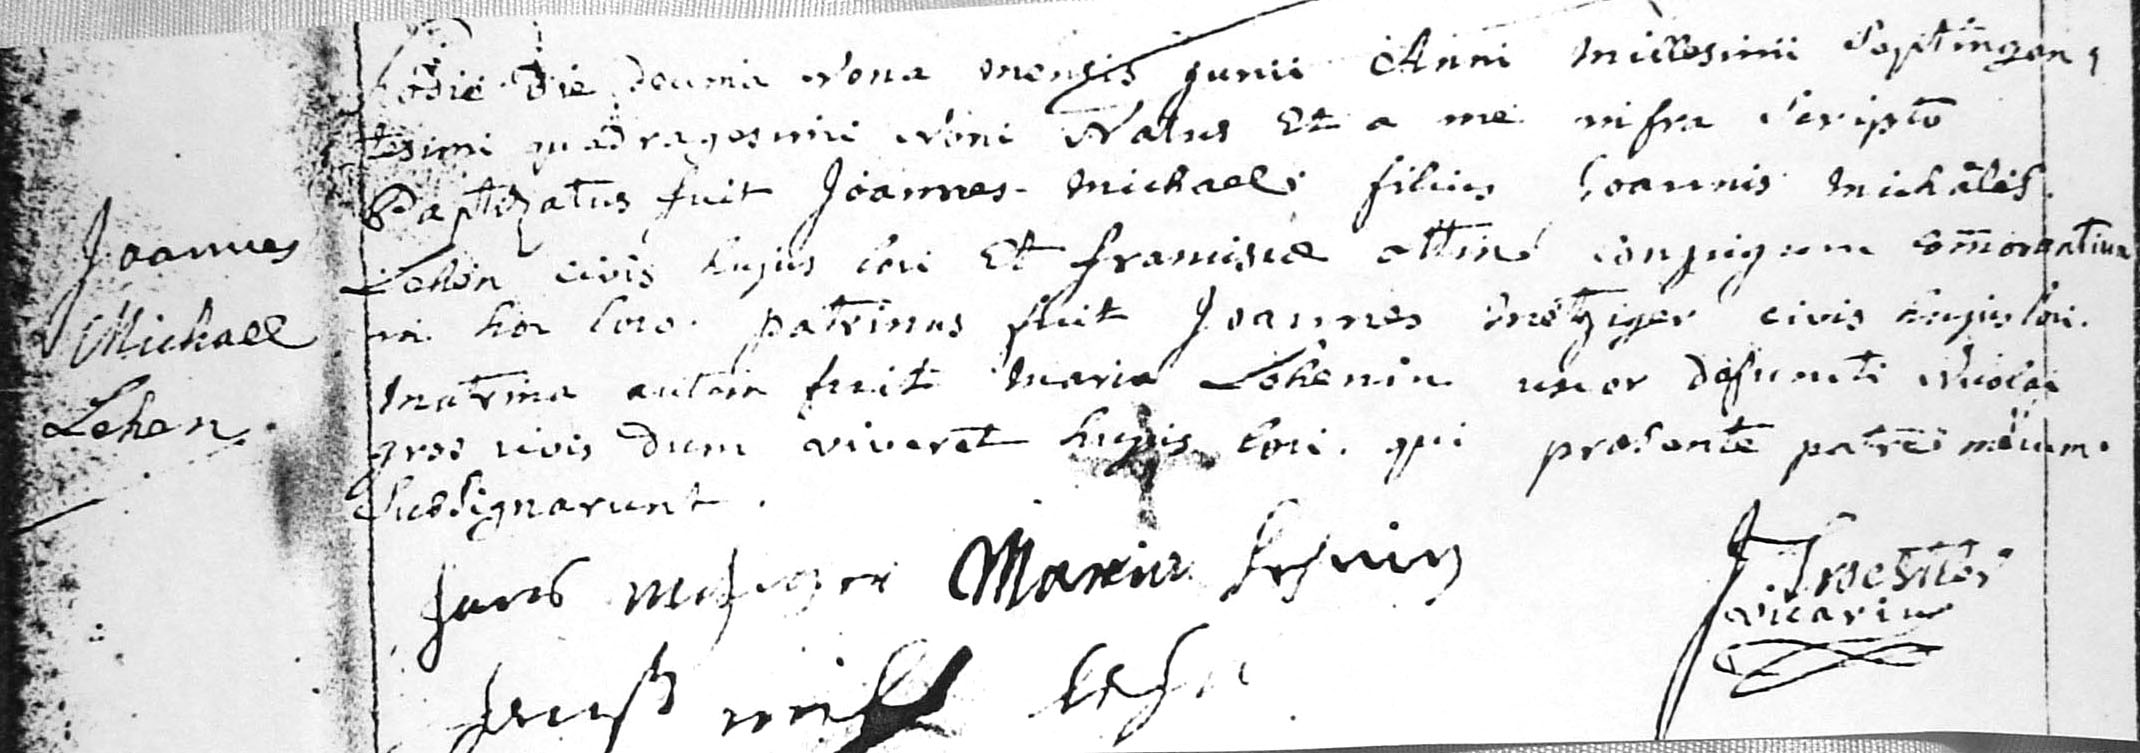 Joannes
Michael
Lehen.
hodie die decima Nona mensis Junii Anni Millesimi Septingen,
tesimi quadragesimi Noni Natus Et a me infra Scripto
Baptizatus fuit Joannes Michael filius Joannis Michaelis
Lehen civis hujus loci Et franciscæ conjugum com̄orantium
in hoc loco. patrinus fuit Joannes metziger civis hujus loci.
matrina autem fuit Maria Lehenin uxor defuncti Nicolai
gros civis dum viveret hujus loci. qui presente patre mecum
Subsignarunt.
Maria
vicarius